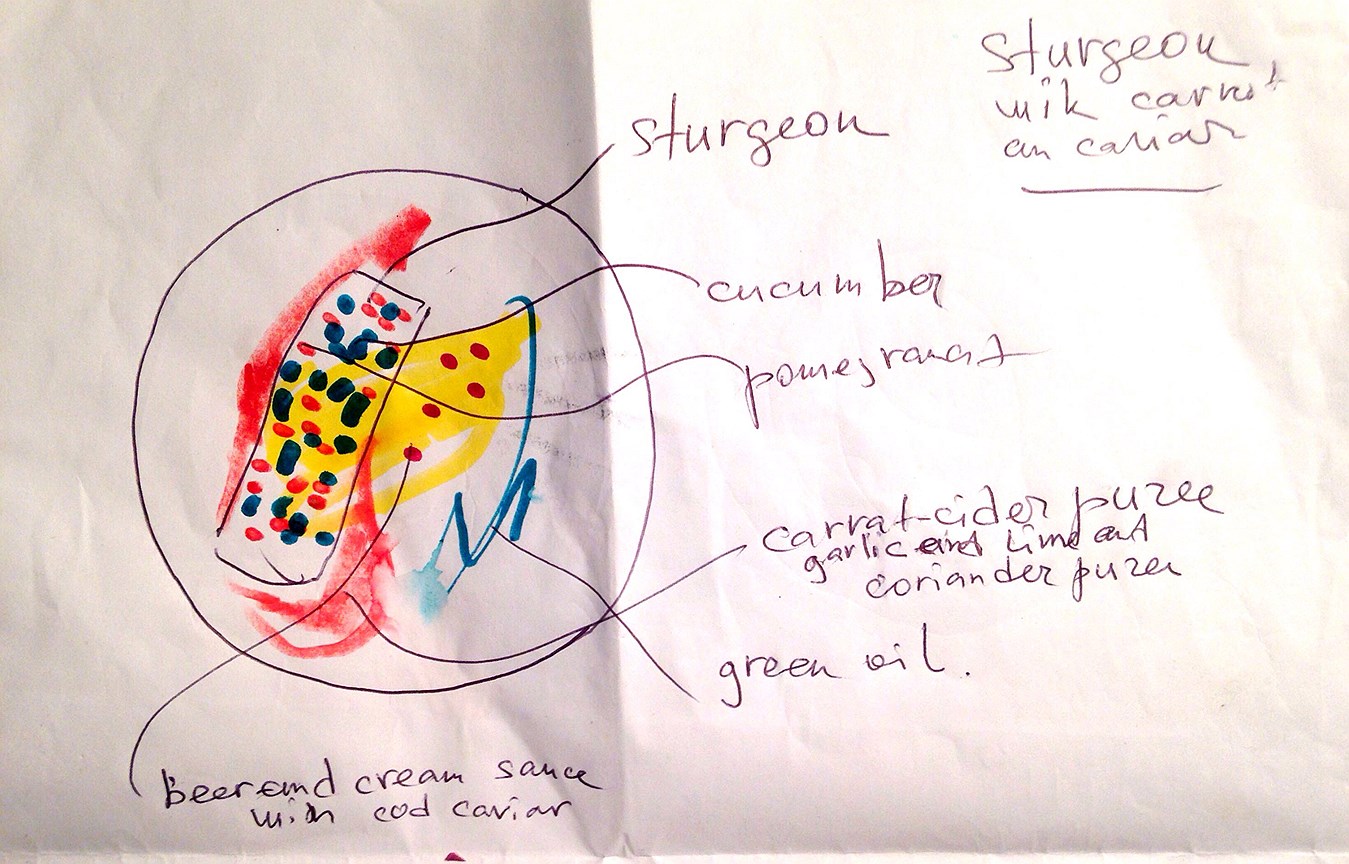 Sturgeon,
wik carrot
an caviar
sturgeon
cucumber
pomegranat
carrat-cider puree
garlic and lime and
coriander puree
green oil.
beer and cream sauce
with cod caviar